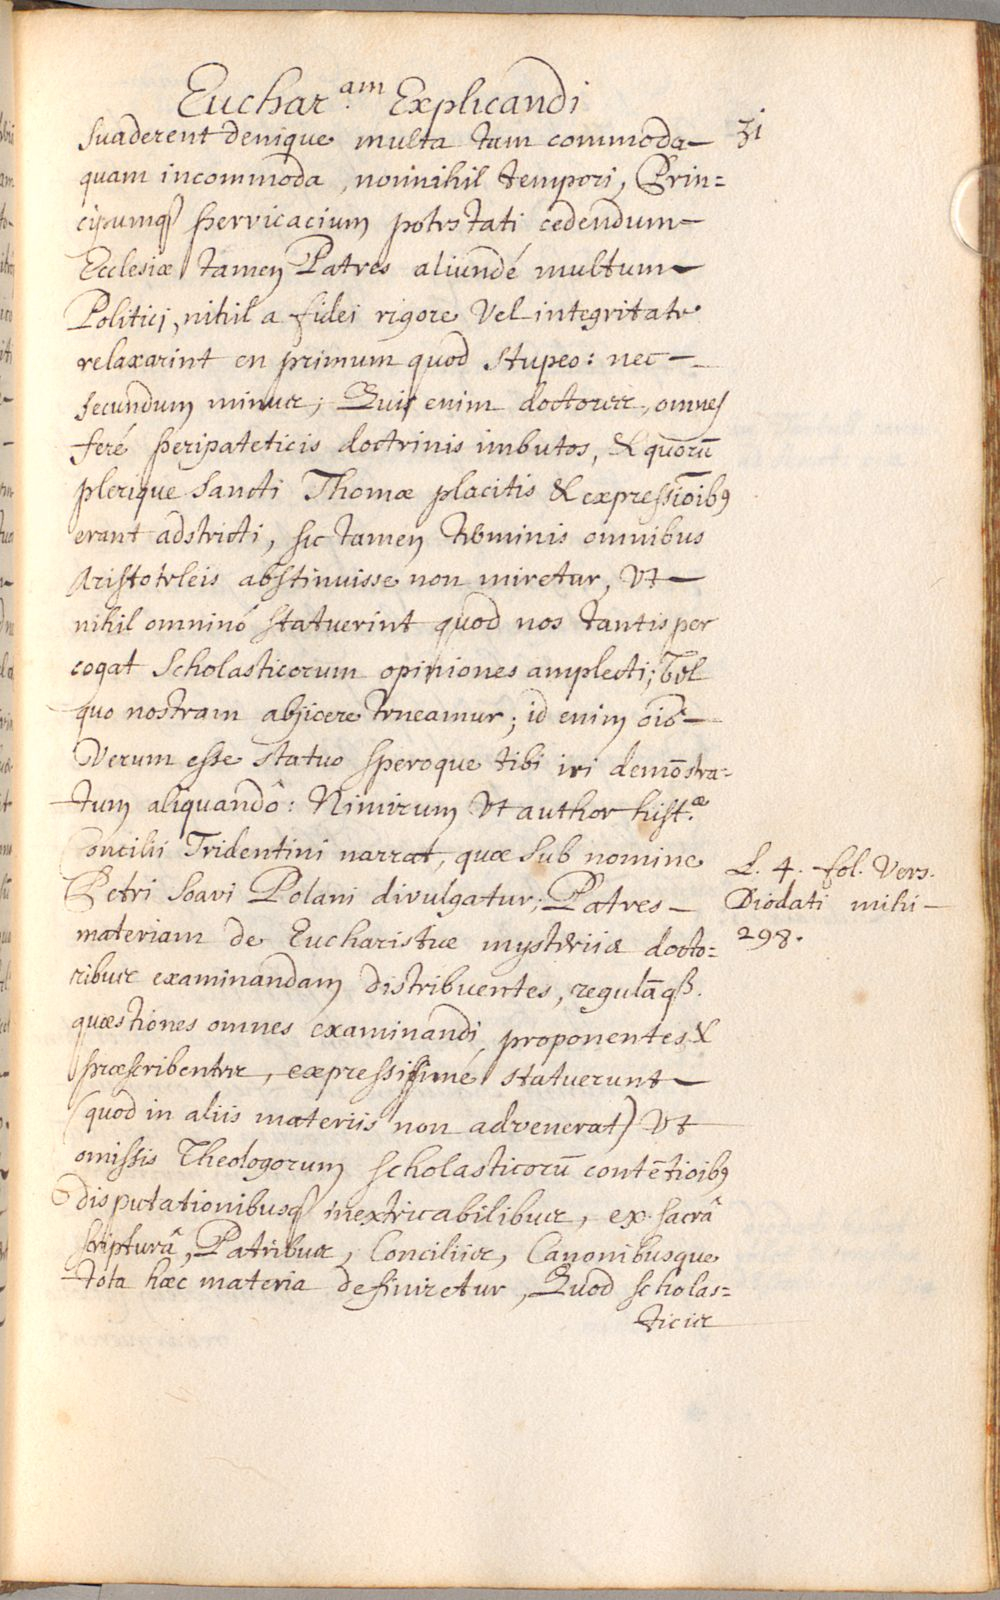 Euchar.am Explicandi
31
suaderent denique multa tam commoda
quam incommoda, nonnihil tempori, Prin=
cipumq₃ pervicacium potestati cedendum
Ecclesiæ tamen Patres aliundé multum
Politici, nihil a fidei rigore vel integritate
relaxarint en primum quod stupeo: nec
secundum minus; Quis enim doctores, omnes
feré peripateticis doctrinis imbutos, & quorū
plerique Sancti Thomæ placitis & expressīoibꝰ
erant adstricti, sic tamen terminis omnibus
Aristoteleis abstinuisse non miretur, Vt
nihil omninó statuerint quod nos tantisper
cogat Scholasticorum opiniones amplecti; Vel
quo nostram abjicere teneamur; id enim
Verum esse statuo speroque tibi iri demōstra=
tum aliquandô: Nimirum Vt author hist.æ
Concilii Tridentini narrat, quæ sub nomine
Petri Soavi Polani divulgatur; Patres
materiam de Eucharistiæ mysteriis docto=
ribus examinandam distribuentes, regulāq₃.
quæstiones omnes examinandi proponentes &
præscribentes, expressissimé statuerunt
(quod in aliis materiis non advenerat) Vt
omissis Theologorum scholasticorū contētioibꝰ
disputationibusq₃ inextricabilibus, ex sacrâ
scripturâ, Patribus, Conciliis, Canonibusque
tota hæc materia definiretur, Quod scholas=
ticis
L. 4. fol. Vers.
Diodati mihi
298.